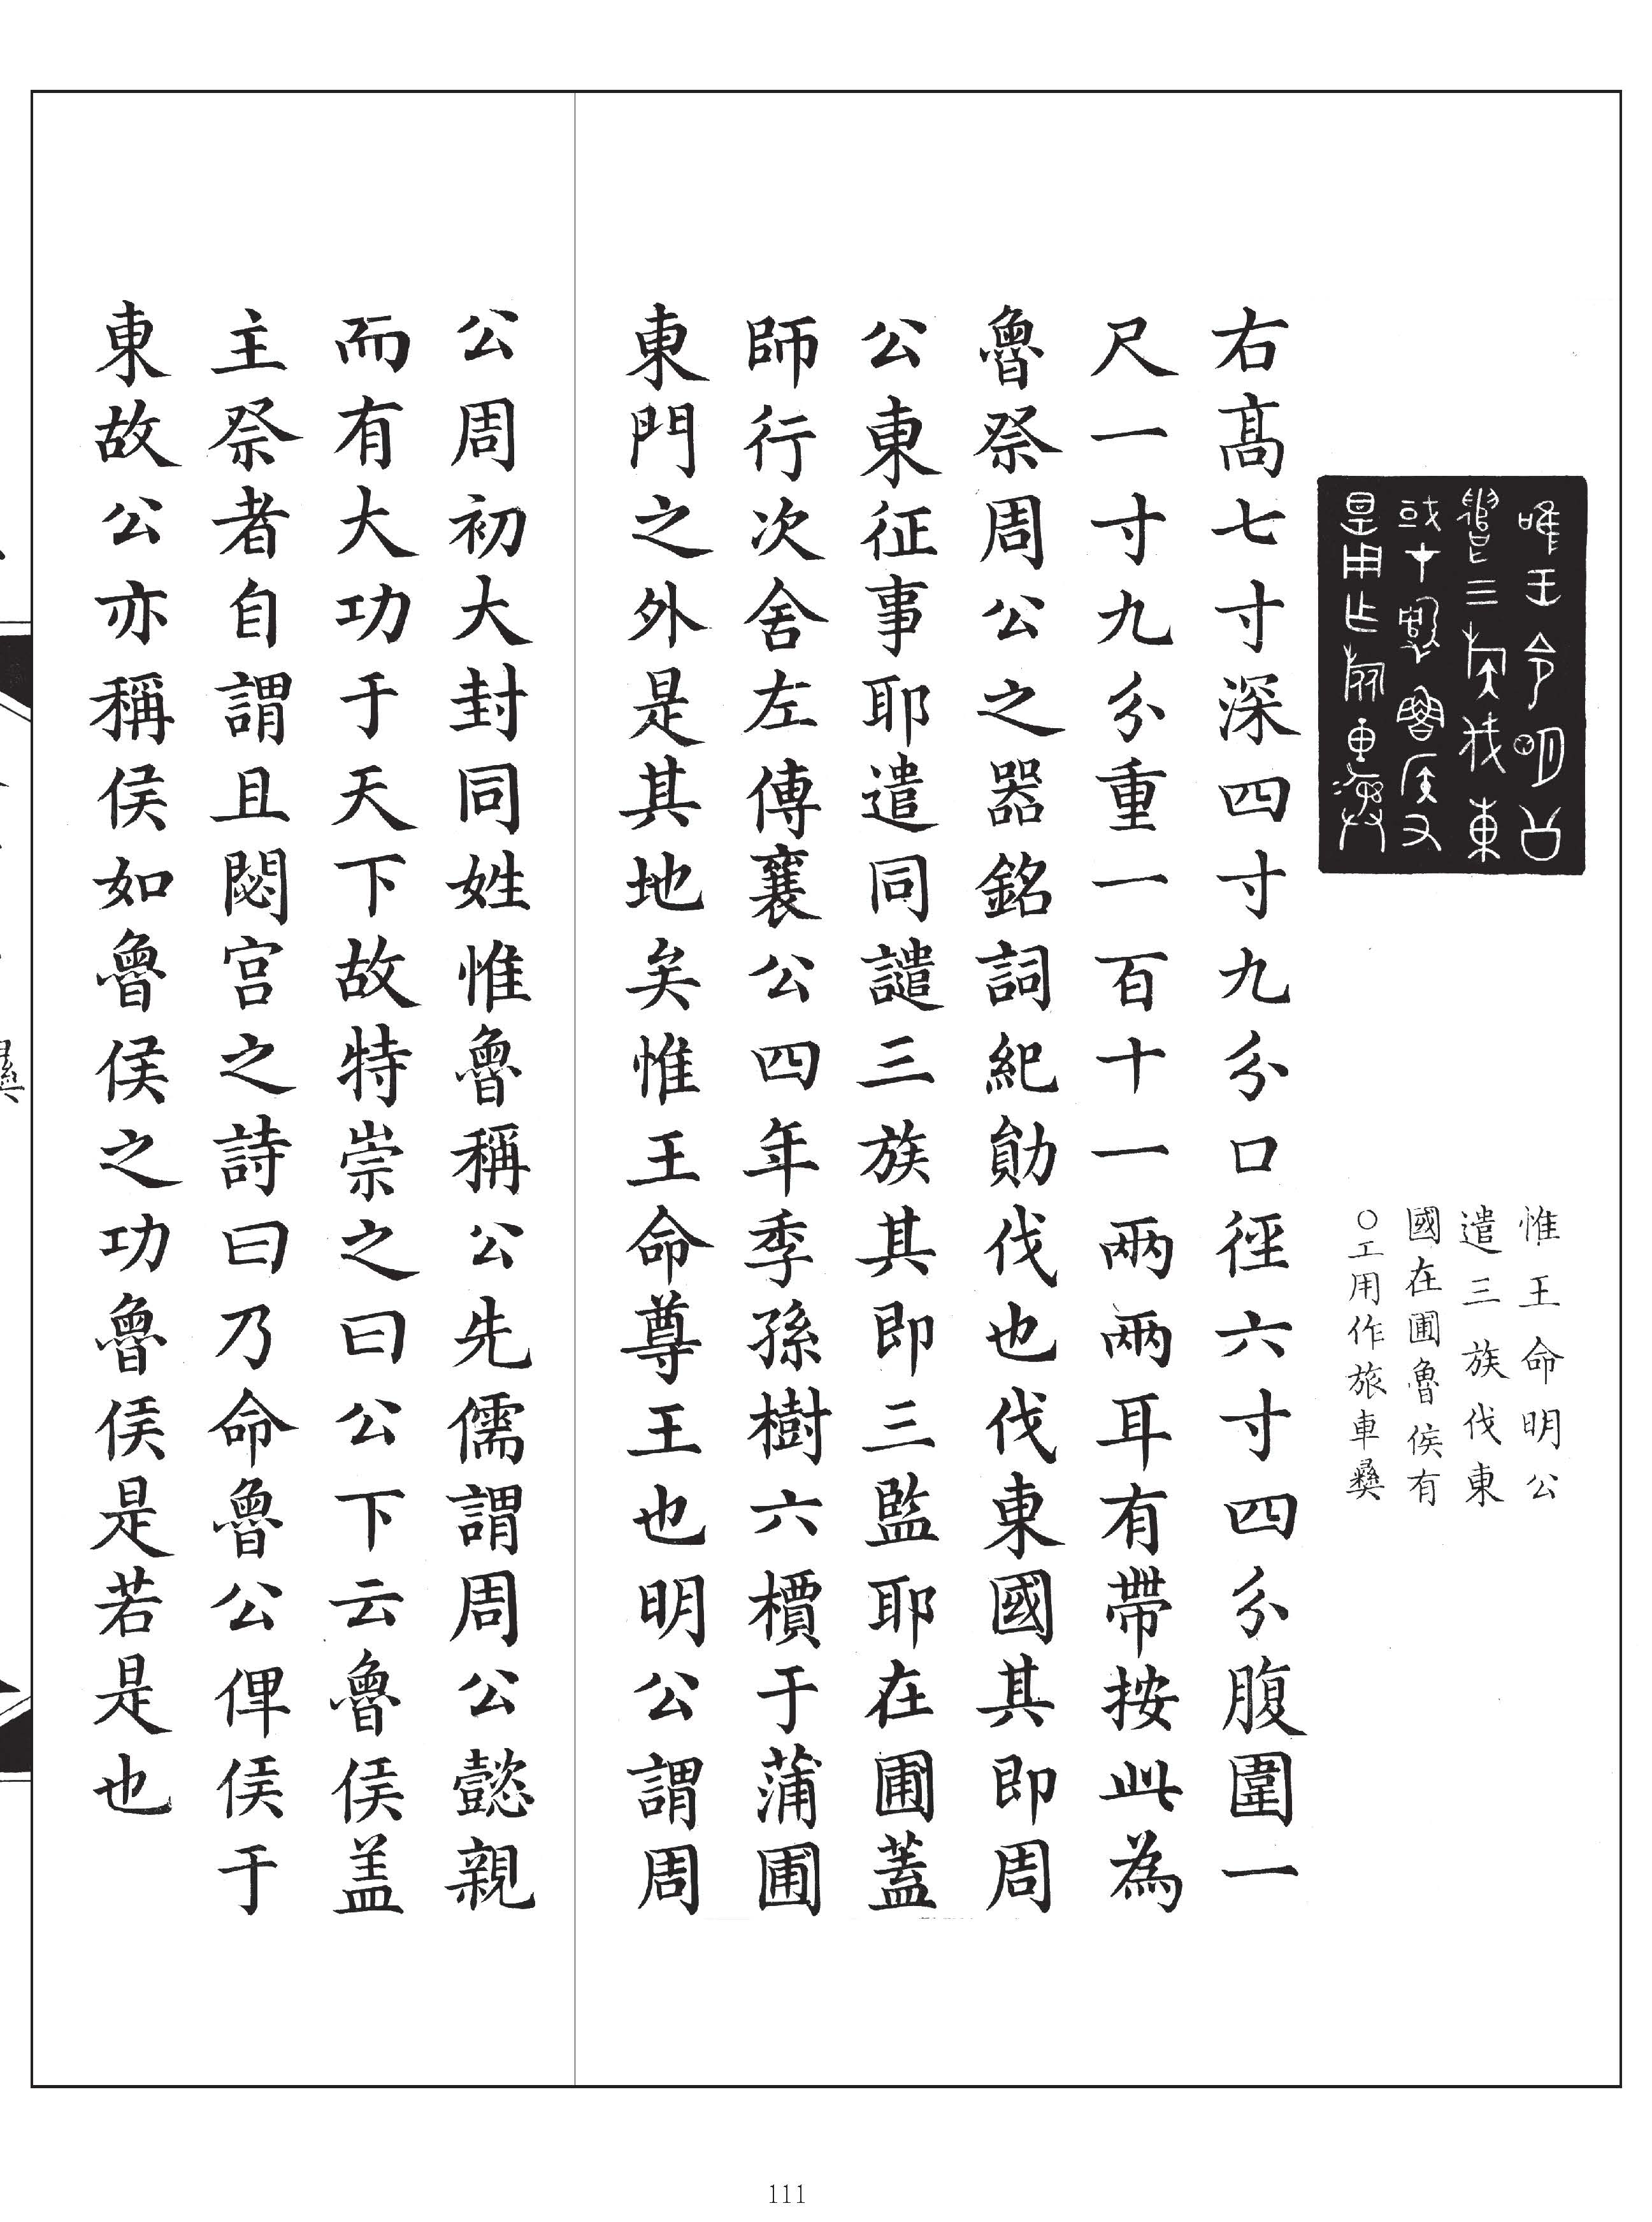 惟王命明公
遣三族伐東
國在圃魯侯有
○工用作旅車彝
右高七寸深四寸九分口徑六寸四分腹圍一
尺一寸九分重一百十一兩兩耳有帶按此為
魯祭周公之器銘詞紀勛伐也伐東國其即周
公東征事耶遣同譴三族其即三監耶在圃蓋
師行次舍左傳襄公四年季孫樹六檟于蒲圃
東門之外是其地矣惟王命尊王也明公謂周
公周初大封同姓惟魯稱公先儒謂周公懿親
而有大功于天下故特崇之曰公下云魯侯盖
主祭者自謂且閟宮之詩曰乃命魯公俾侯于
東故公亦稱侯如魯侯之功魯侯是若是也
111